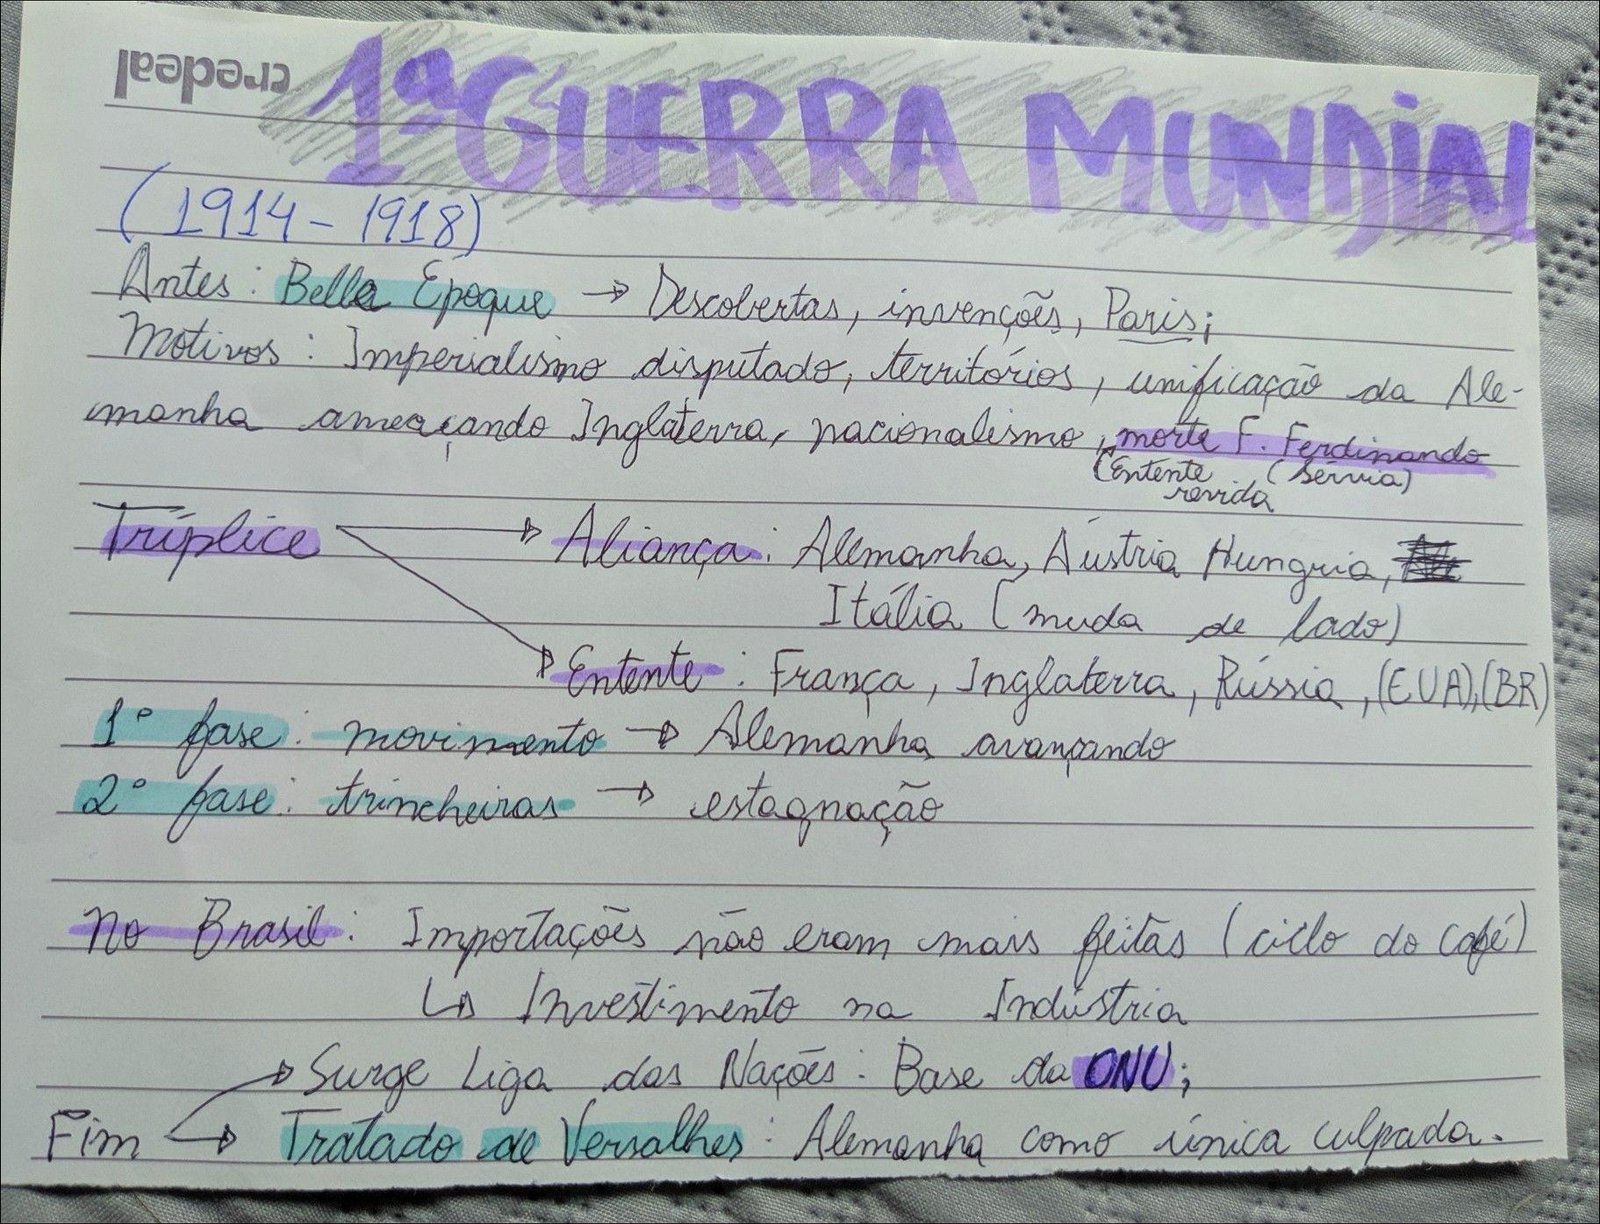 credeal
1ª GUERRA MUNDIAL
(1914 - 1918)
Antes: Bella Epoque → Descobertas, invenções, Paris;
Motivos: Imperialismo disputado, territórios, unificação da Ale-
manha ameaçando Inglaterra, nacionalismo, morte F. Ferdinando
(Entente (Sérvia)
revida
Tríplice → Aliança: Alemanha, Áustria Hungria,
Itália (muda de lado)
→ Entente: França, Inglaterra, Rússia, (EUA), (BR)
1º fase: movimento → Alemanha avançando
2º fase: trincheiras → estagnação
No Brasil: Importações não eram mais feitas (ciclo do café)
↳ Investimento na Indústria
→ Surge Liga das Nações: Base da ONU;
Fim → Tratado de Versalhes: Alemanha como única culpada.